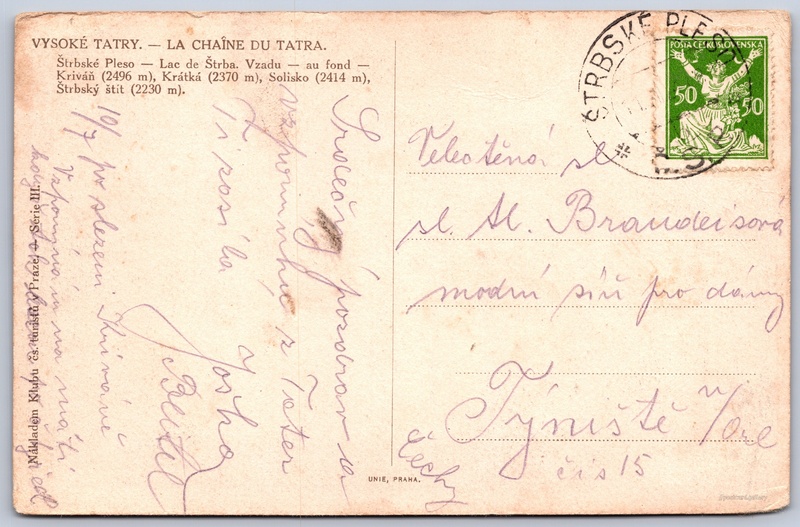 VYSOKÉ TATRY. — LA CHAÎNE DU TATRA.
Štrbské Pleso — Lac de Štrba. Vzadu — au fond —
Kriváň (2496 m), Krátká (2370 m), Solisko (2414 m),
Štrbský štít (2230 m).
Srdečný pozdrav a
vzpomínku z Tater
Ti posílá
Joška
10/7 po slezení Kriváně
Vzpomínám na
Nákladem Klubu čs. turistů v Praze. — Série III.
UNIE, PRAHA.
ŠTRBSKÉ PLESO
POŠTA ČESKOSLOVENSKÁ
50 50
Velectěná sl.
sl. Al. Brandeisová
modní síň pro dámy
Týniště n/Orl
čís 15
Čechy